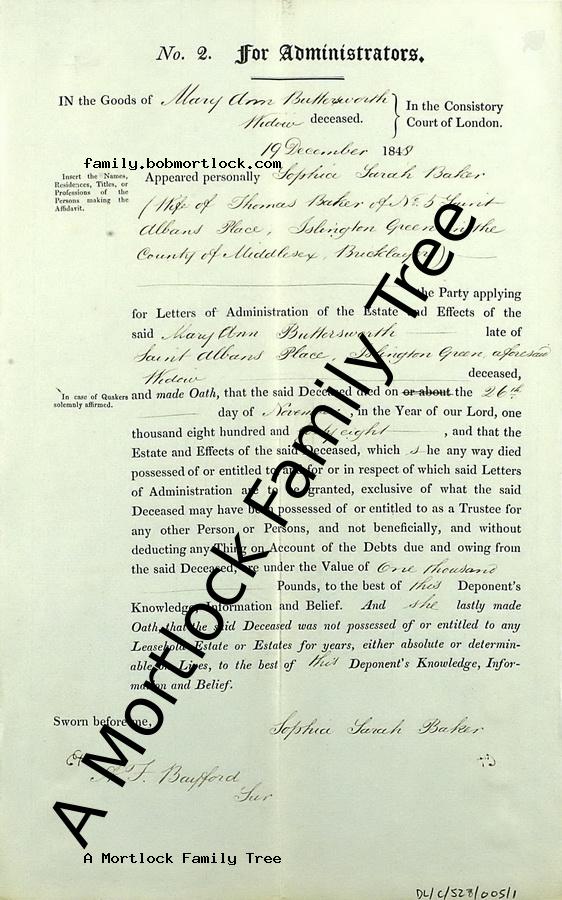 No. 2. For Administrators.
IN the Goods of Mary Ann Buttersworth
Widow deceased.
In the Consistory
Court of London.
19 December 1848
family.bobmortlock.com
Insert the Names,
Residences, Titles, or
Professions of the
Persons making the
Affidavit.
Appeared personally Sophia Sarah Baker
(Wife of Thomas Baker of No. 5 Saint
Albans Place, Islington Green in the
County of Middlesex, Bricklayer)
the Party applying
for Letters of Administration of the Estate and Effects of the
said Mary Ann Buttersworth late of
Saint Albans Place, Islington Green, aforesaid
Widow deceased,
In case of Quakers
solemnly affirmed.
and made Oath, that the said Deceased died on or about the 26th
day of November, in the Year of our Lord, one
thousand eight hundred and eight, and that the
Estate and Effects of the said Deceased, which s he any way died
possessed of or entitled to and for or in respect of which said Letters
of Administration are to be granted, exclusive of what the said
Deceased may have been possessed of or entitled to as a Trustee for
any other Person or Persons, and not beneficially, and without
deducting any Thing on Account of the Debts due and owing from
the said Deceased, are under the Value of One thousand
Pounds, to the best of this Deponent's
Knowledge, Information and Belief. And she lastly made
Oath, that the said Deceased was not possessed of or entitled to any
Leasehold Estate or Estates for years, either absolute or determin-
able on Lives, to the best of this Deponent's Knowledge, Infor-
mation and Belief.
Sworn before me,
Sophia Sarah Baker
A. F. Bayford
Sur
A Mortlock Family Tree
A Mortlock Family Tree
DL/C/528/005/1